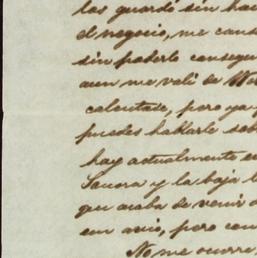 las guardé sin ha
el negocio, me caus
sin poderlo consegu
aun me valí de
calentade, pero ya
puedes hablarle sob
hay actualmente e
Sonora y la baja
que acaba de venir
con avio, pero con
No me ocurre